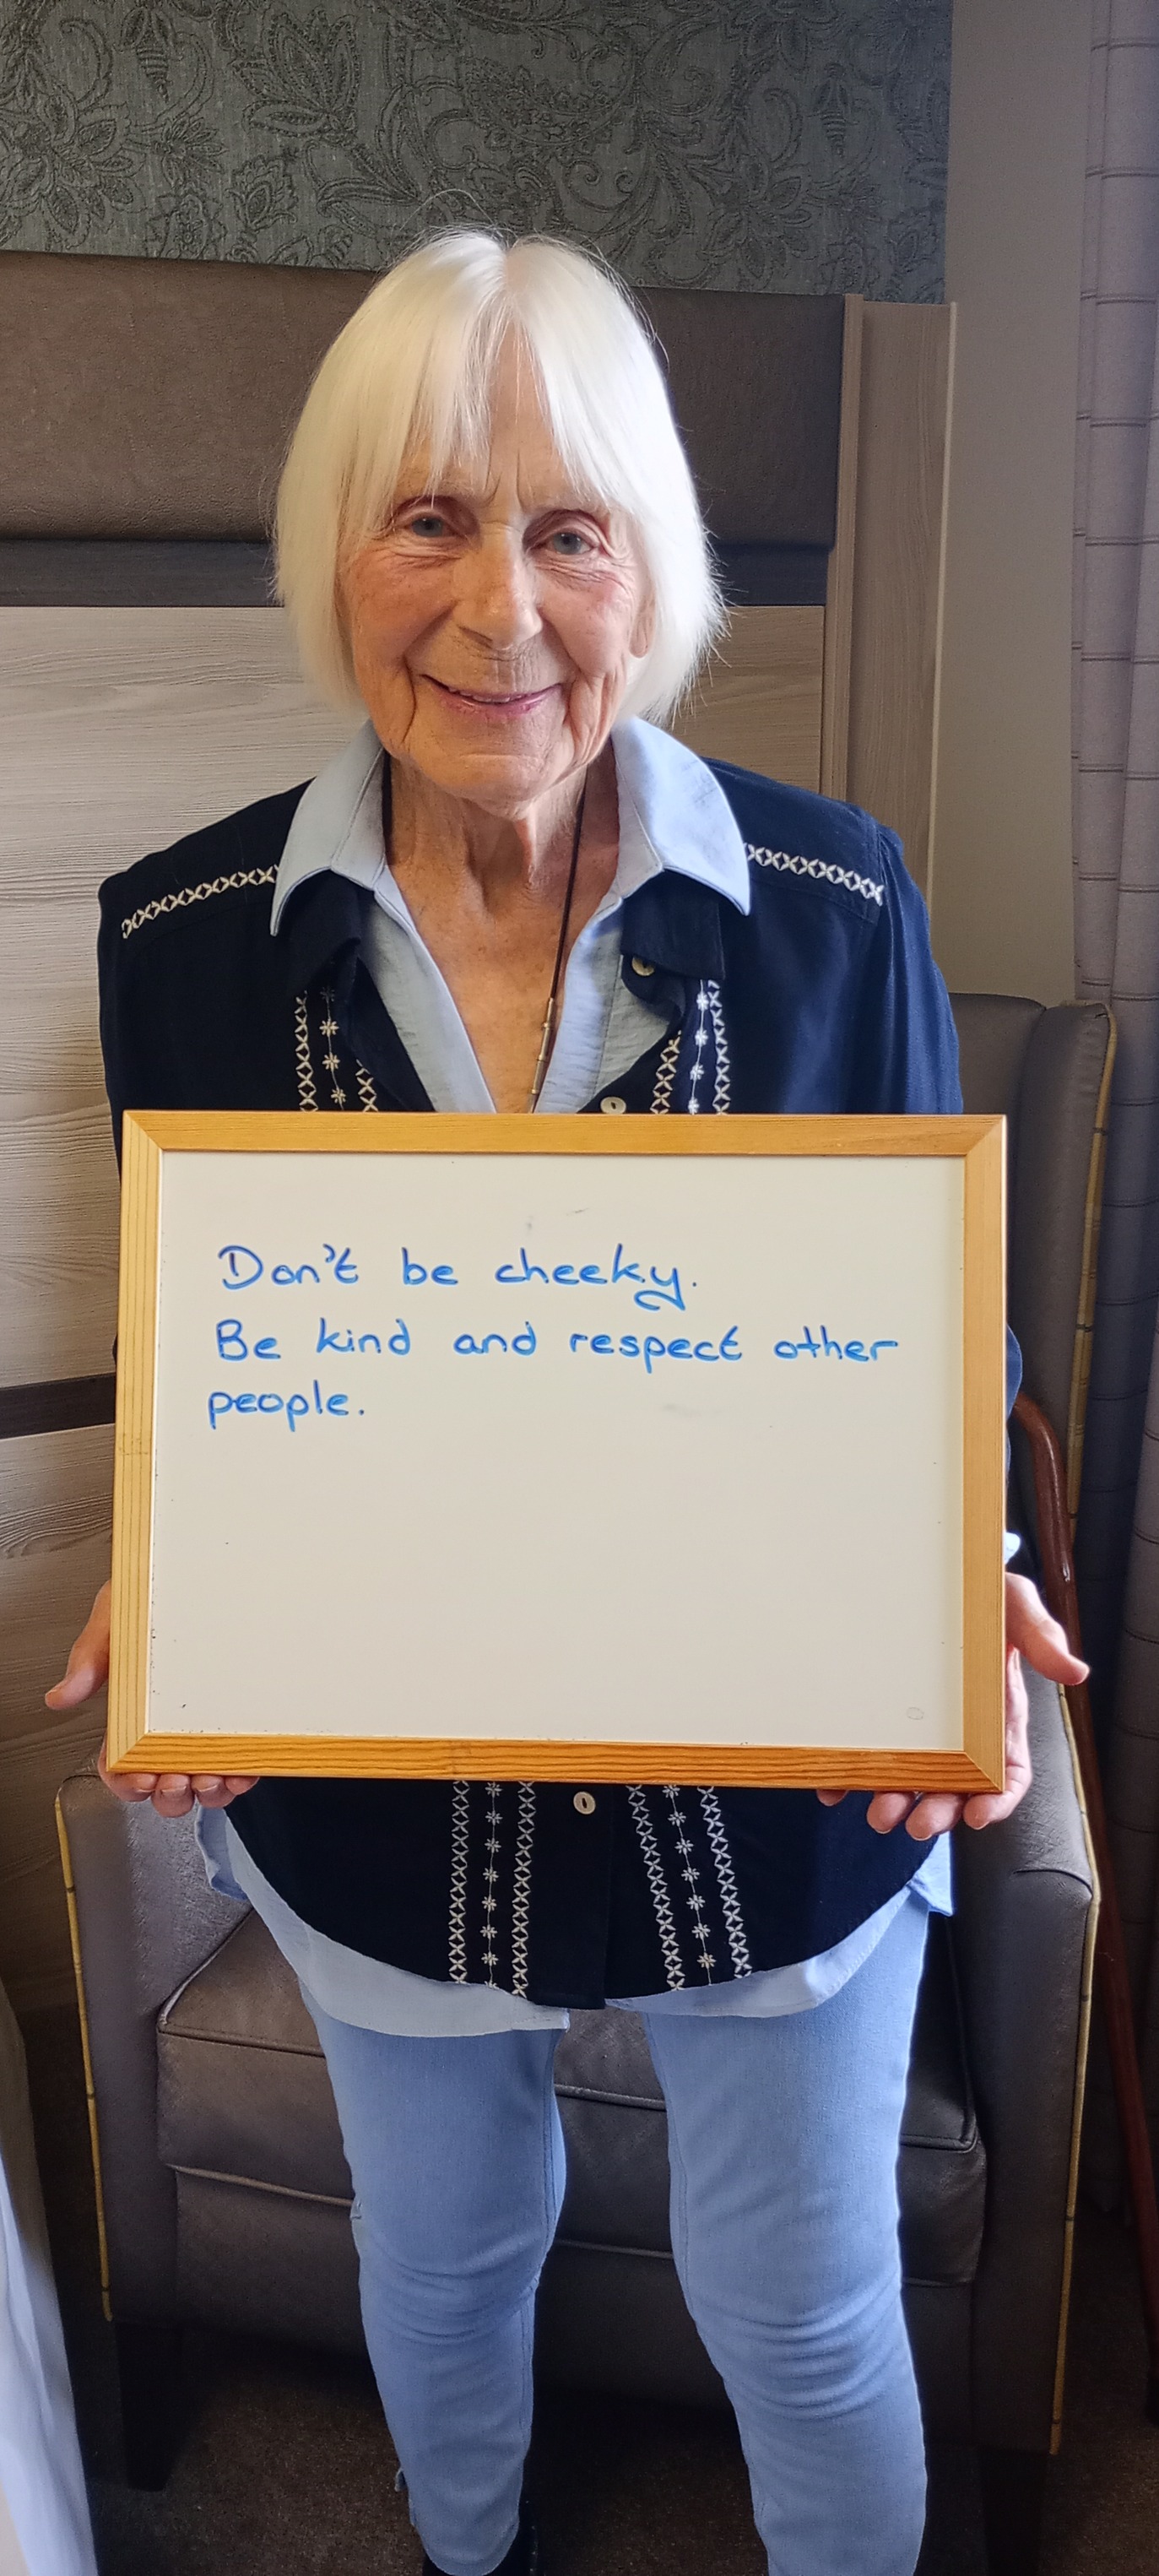 Don't be cheeky.
Be kind and respect other
people.